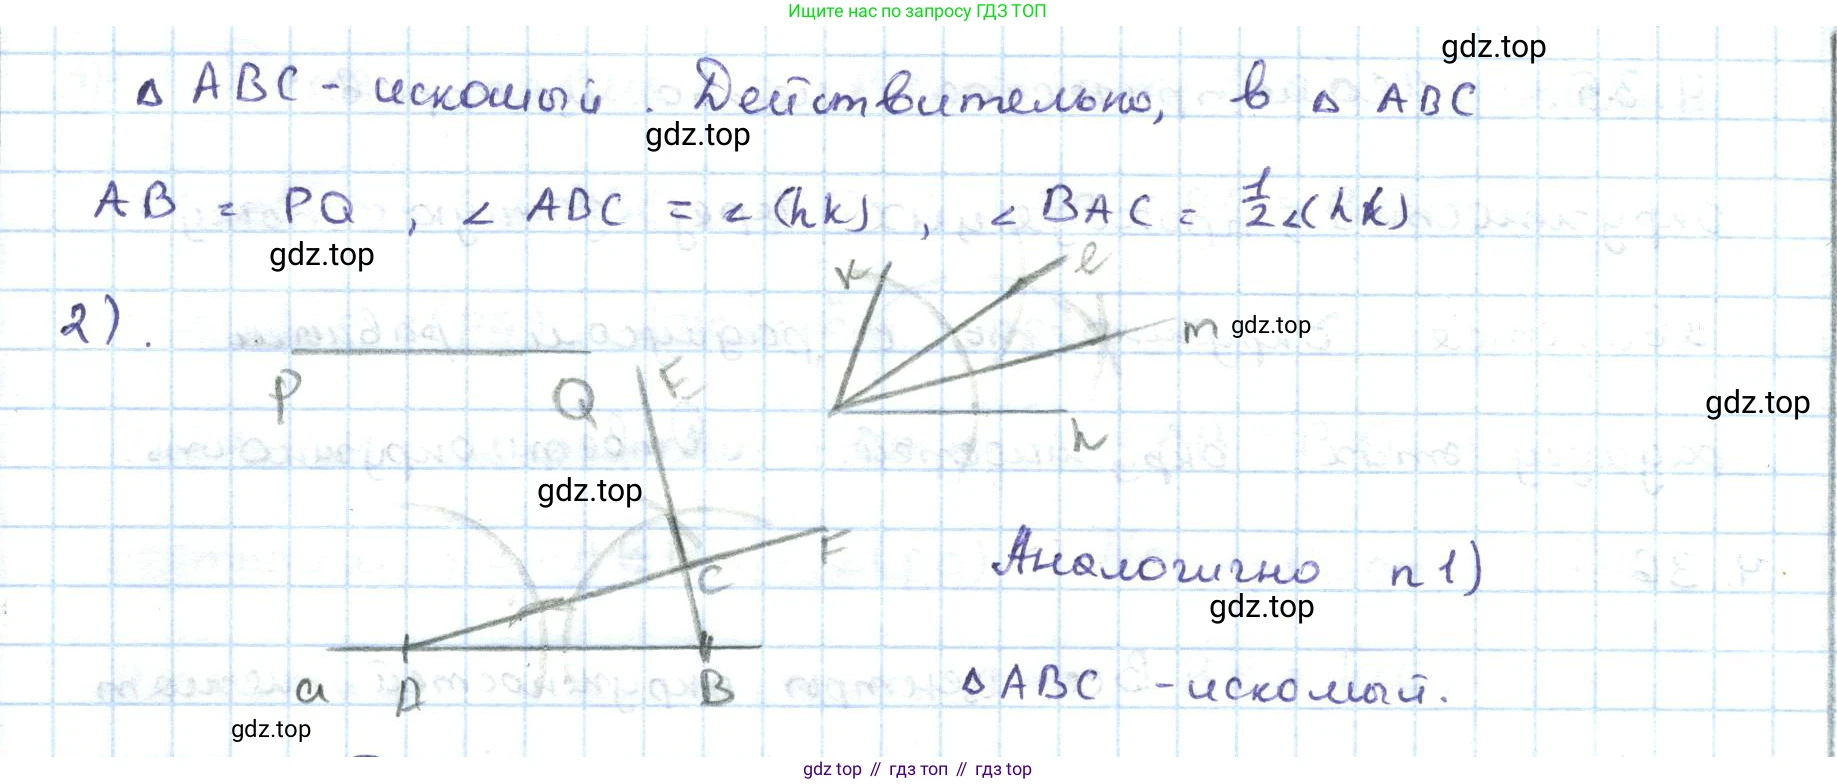 Ищите нас по запросу ГДЗ ТОП
gdz.top
△ ABC - искомый. Действительно, в △ ABC
gdz.top
AB = PQ, ∠ ABC = ∠(hk), ∠ BAC = 1/2 ∠(hk)
gdz.top
2).
k
l
m
gdz.top
h
P
Q
E
gdz.top
gdz.top
F
C
Аналогично п 1)
gdz.top
a
A
B
△ ABC - искомый.
gdz.top
gdz top // гдз топ // гдз top